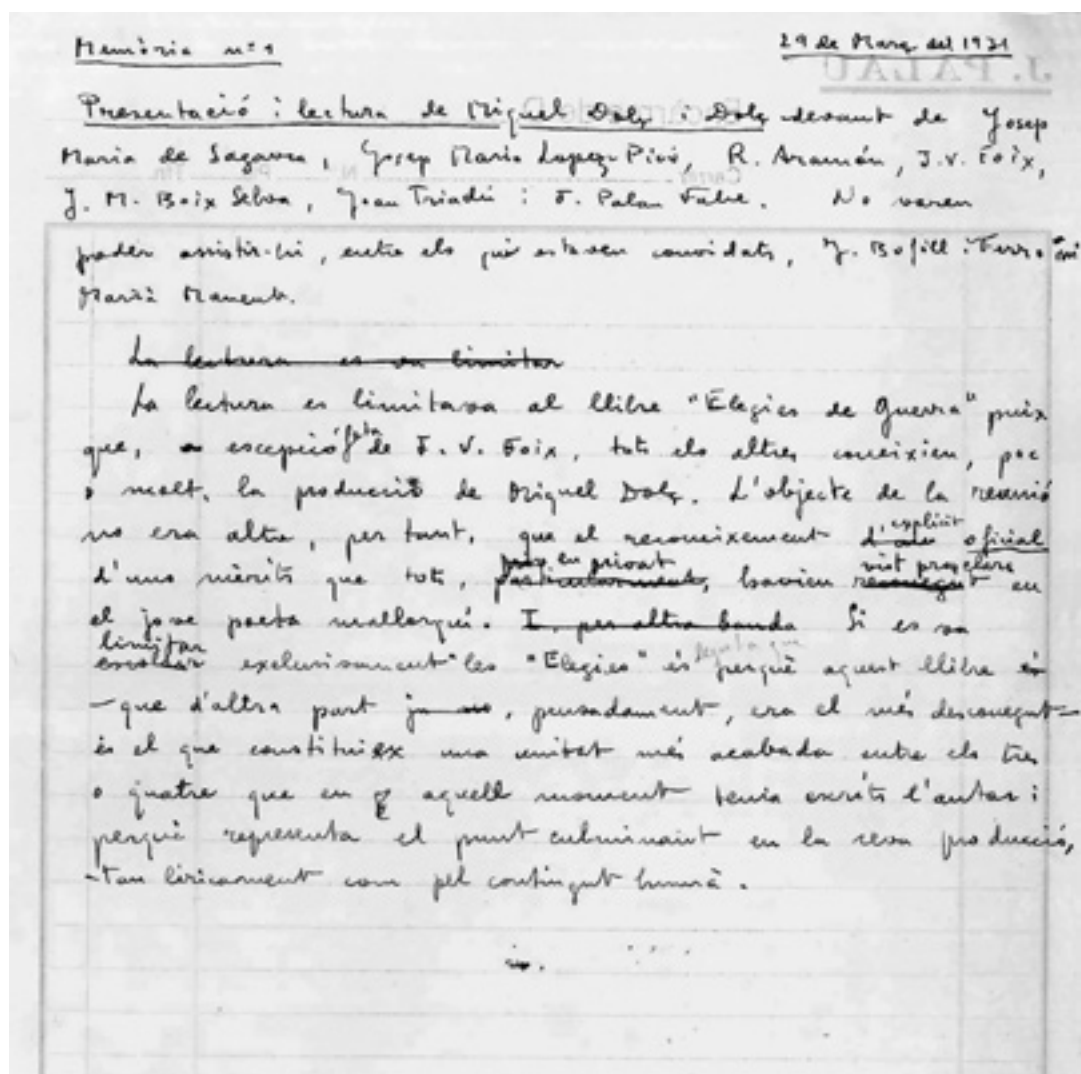 Memòria nº 1 29 de Març del 1971
J. PALAU
Presentació i lectura de Miquel Dolç i Dolç devant de Josep
Maria de Sagarra, Josep Maria Lopez-Picó, R. Aramón, J. V. Foix,
J. M. Boix Selva, Joan Triadú i J. Palau Fabre. No varen
poder assistir-hi, entre els qui estaven convidats, J. Bofill i Ferro ni
Marià Manent.
La lectura es va limitar
La lectura es limitava al llibre "Elegies de Guerra" puix
que, a escepció feta de J. V. Foix, tots els altres coneixien, poc
o molt, la producció de Miquel Dolç. L'objecte de la reunió
no era altre, per tant, que el reconeixement explícit oficial
d'uns mèrits que tots, en privat particularment, havien vist reconegut en
el jove poeta mallorquí. I, per altra banda Si es va
limitar escoltar exclusivament les "Elegies" és perquè aquest llibre és
– que d'altra part ja no, pensadament, era el més desconegut –
és el que constitueix una unitat més acabada entre els tres
o quatre que en aquell moment tenia escrits l'autor i
perquè representa el punt culminant en la seva producció,
tan líricament com pel contingut humà.